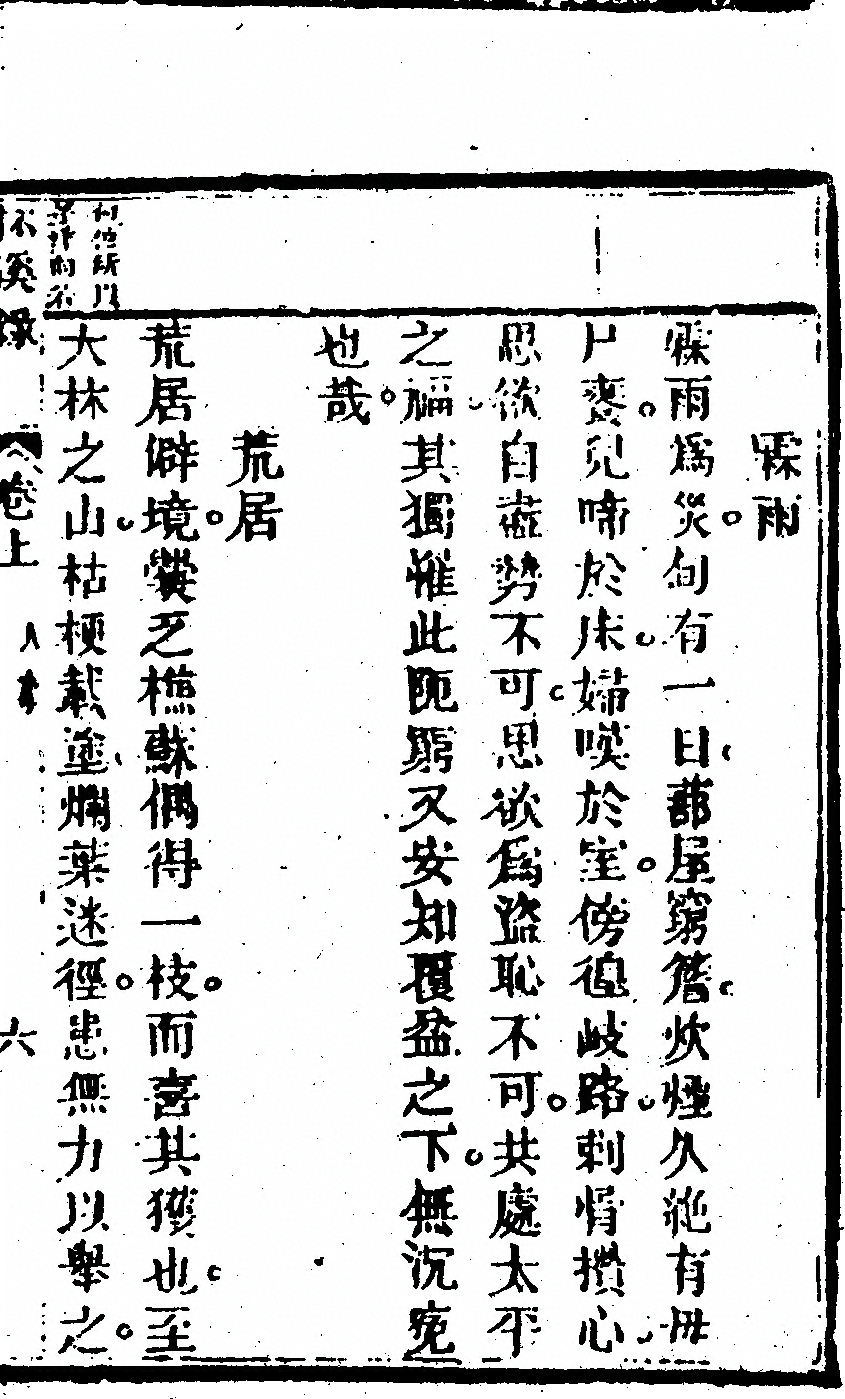 霖雨
霖雨爲災旬有一日蔀屋窮簷炊煙久絶有毋
尸饔兒啼於床婦嘆於室傍徨岐路刺骨攢心
思欲自盡勢不可思欲爲盜恥不可共處太平
之福其獨罹此阨窮又安知覆盆之下無沉寃
也哉
荒居
荒居僻境爨乏樵蘇偶得一枝而喜其獲也至
大林之山枯梗載塗爛葉迷徑患無力以舉之
卷上
六